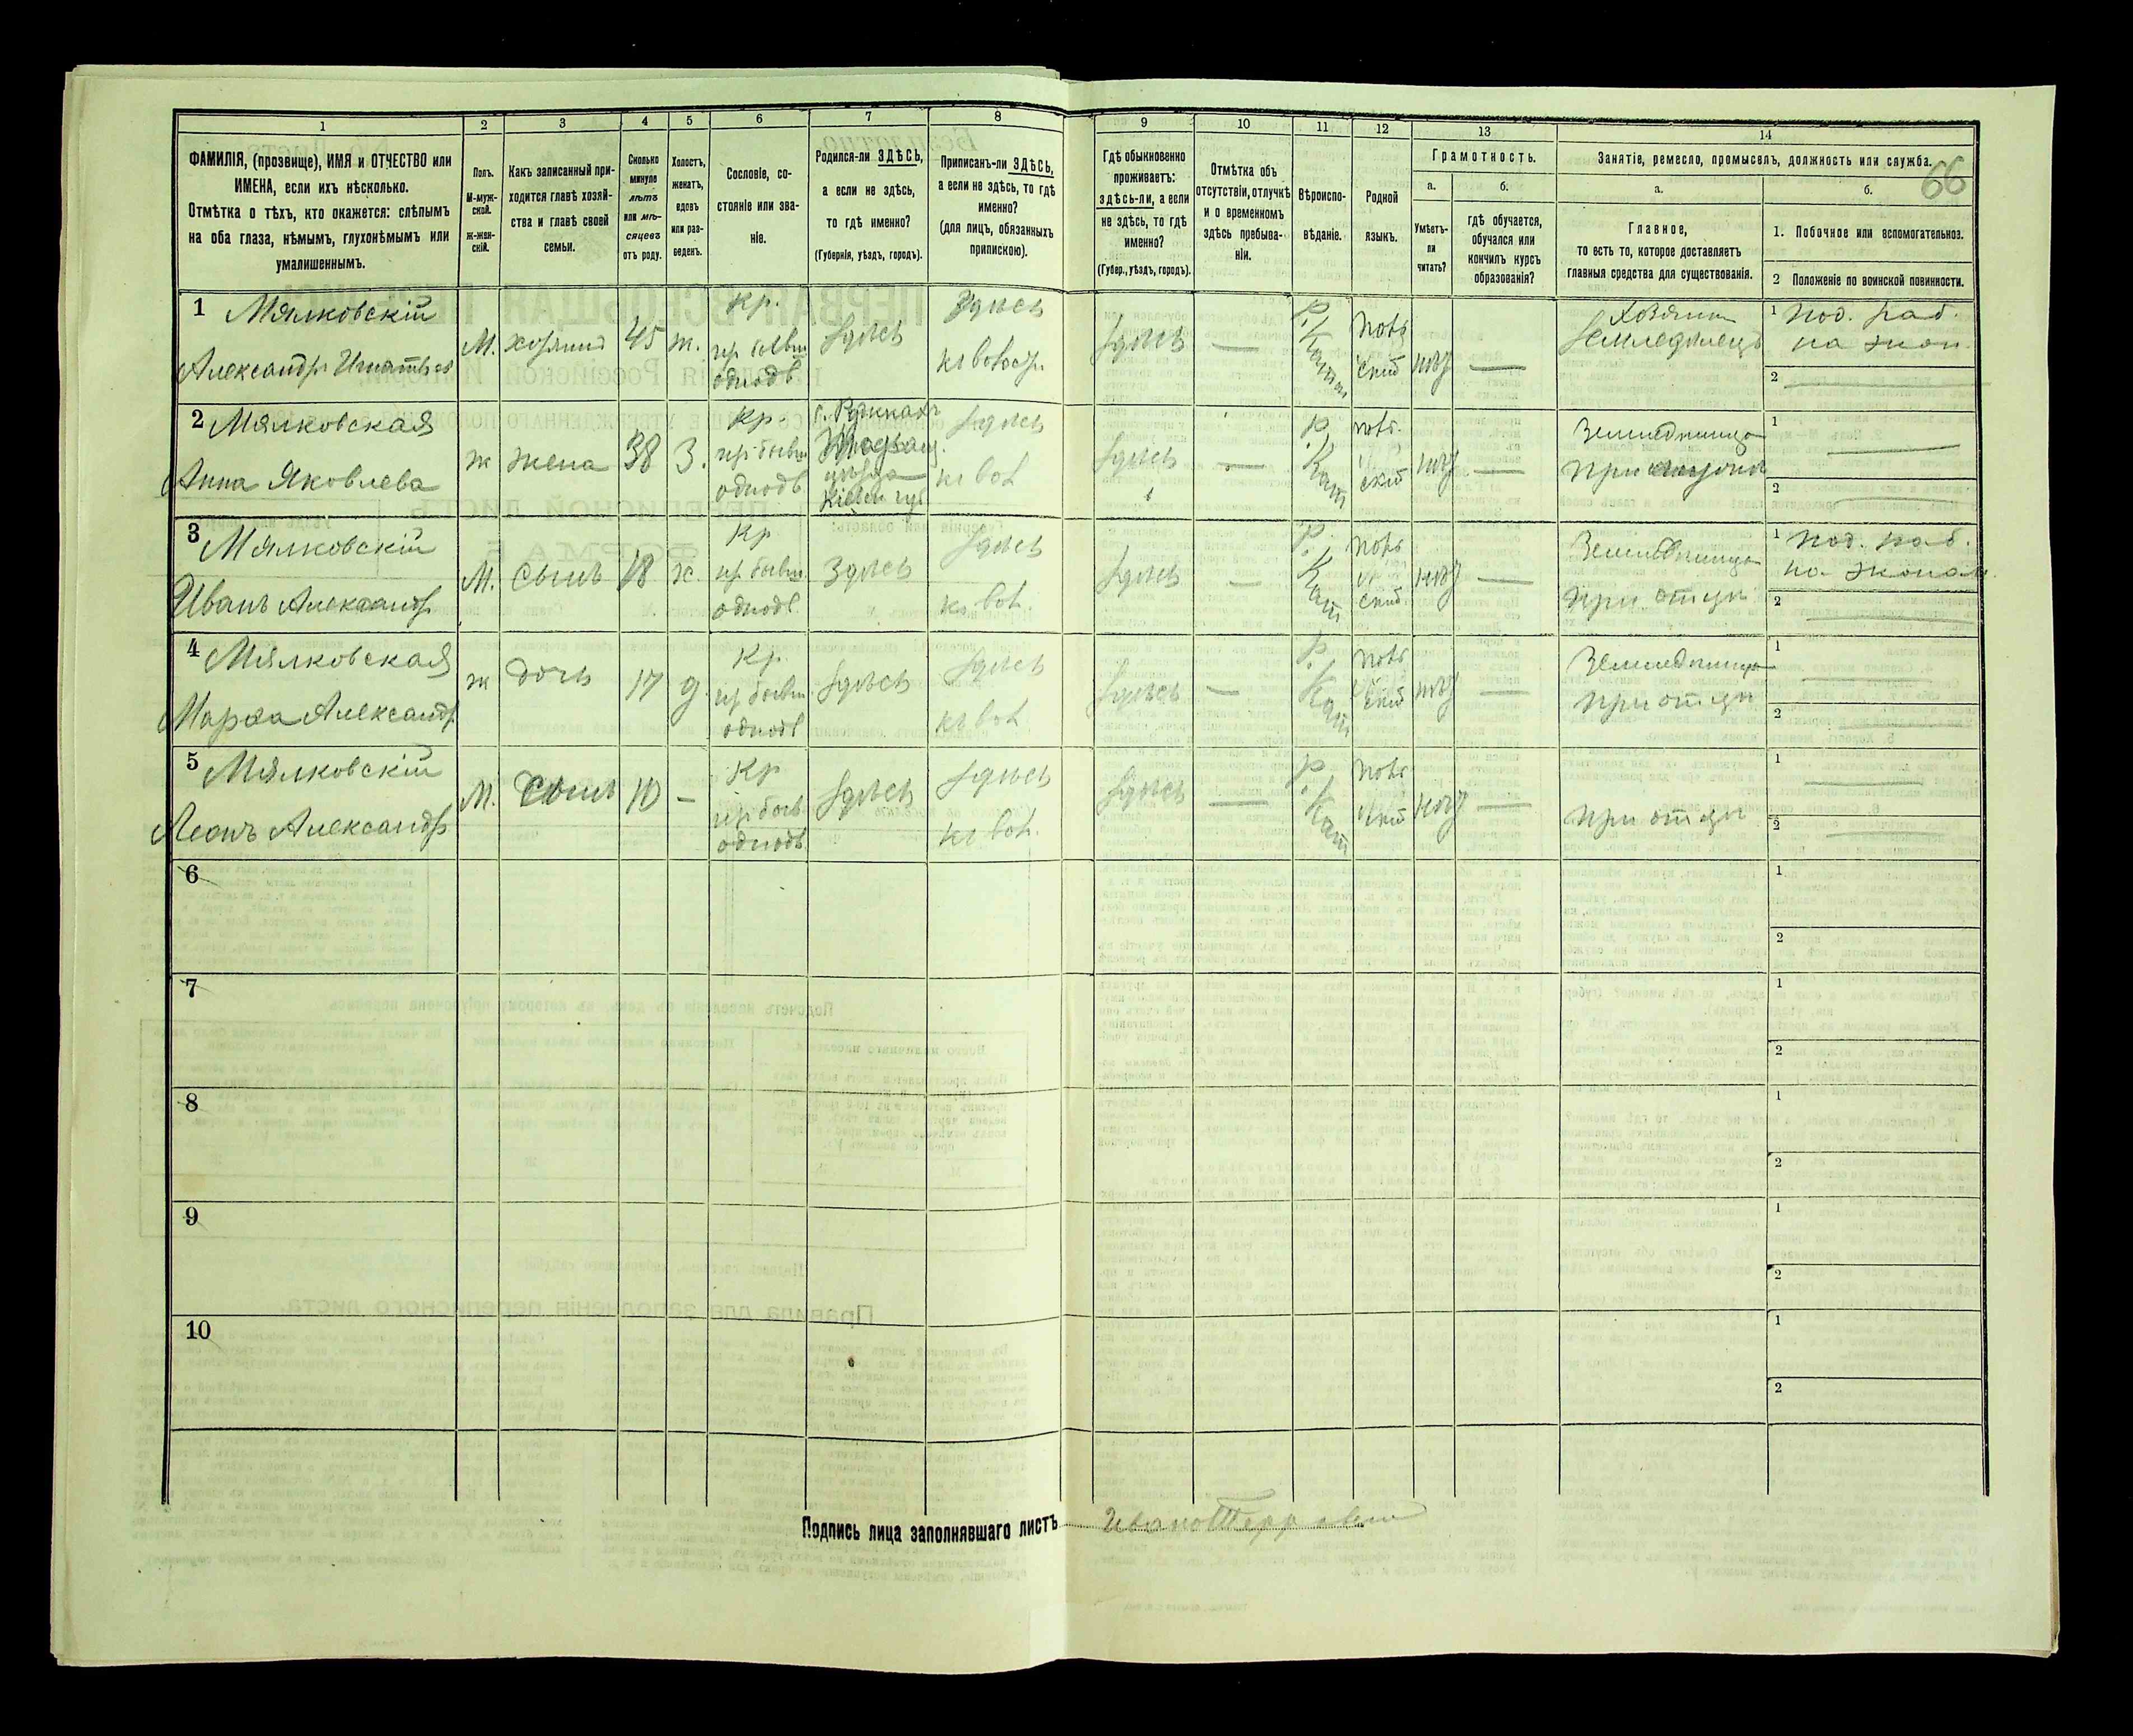 1
2
3
4
5
6
7
8
9
10
11
12
13
14
ФАМИЛІЯ, (прозвище), ИМЯ и ОТЧЕСТВО или
ИМЕНА, если ихъ нѣсколько.
Отмѣтка о тѣхъ, кто окажется: слѣпымъ
на оба глаза, нѣмымъ, глухонѣмымъ или
умалишеннымъ.
Полъ.
М-муж-
ской.
ж-жен-
скій.
Какъ записанный при-
ходится главѣ хозяй-
ства и главѣ своей
семьи.
Сколько
минуло
лѣтъ
или мѣ-
сяцевъ
отъ роду.
Холостъ,
женатъ,
вдовъ
или раз-
веденъ.
Сословіе, со-
стояніе или зва-
ніе.
Родился-ли ЗДѢСЬ,
а если не здѣсь,
то гдѣ именно?
(Губернія, уѣздъ, городъ).
Приписанъ-ли ЗДѢСЬ,
а если не здѣсь, то гдѣ
именно?
(для лицъ, обязанныхъ
припискою).
Гдѣ обыкновенно
проживаетъ:
здѣсь-ли, а если
не здѣсь, то гдѣ
именно?
(Губер., уѣздъ, городъ).
Отмѣтка объ
отсутствіи, отлучкѣ
и о временномъ
здѣсь пребыва-
ніи.
Вѣроиспо-
вѣданіе.
Родной
языкъ.
Грамотность.
а.
Умѣетъ-
ли
читать?
б.
гдѣ обучается,
обучался или
кончилъ курсъ
образованія?
Занятіе, ремесло, промыселъ, должность или служба.
66
а.
Главное,
то есть то, которое доставляетъ
главныя средства для существованія.
б.
1. Побочное или вспомогательное.
2 Положеніе по воинской повинности.
1 Мялковскій
Александръ Игнатьев
М.
хозяинъ
45
ж.
Кр.
из бывш
однодв
Здѣсь
Здѣсь
Здѣсь
—
Р. Катол
поль
ский
нѣт
—
Хозяин
Земледѣлецъ
1 под. раб.
на экон.
2
2 Мялковская
Анна Яковлева
ж
жена
38
З.
Кр
из бывш
однодв
уѣзда
Киевск губ
Здѣсь
Здѣсь
—
Р. Кат
поль
ский
нѣт
—
при
1
2
3 Мялковскій
Иванъ Александр
М.
сынъ
18
х.
Кр
из бывш
однодв
Здѣсь
Здѣсь
Здѣсь
—
Р. Кат
поль
ский
нѣт
—
при отцѣ
1 под. раб.
на эконом
2
4 Мялковская
Марѳа Александр
ж
дочь
17
д.
Кр
из бывш
однодв
Здѣсь
Здѣсь
Здѣсь
—
Р. Кат
поль
ский
нѣт
—
при отцѣ
1
2
5 Мялковскій
Леонъ Александр
М.
Сынъ
10
—
Кр
из быв
однодв
Здѣсь
Здѣсь
Здѣсь
—
Р. Кат
поль
ский
нѣт
—
при отцѣ
1
2
6
1
2
7
1
2
8
1
2
9
1
2
10
1
2
Подпись лица заполнявшаго листъ